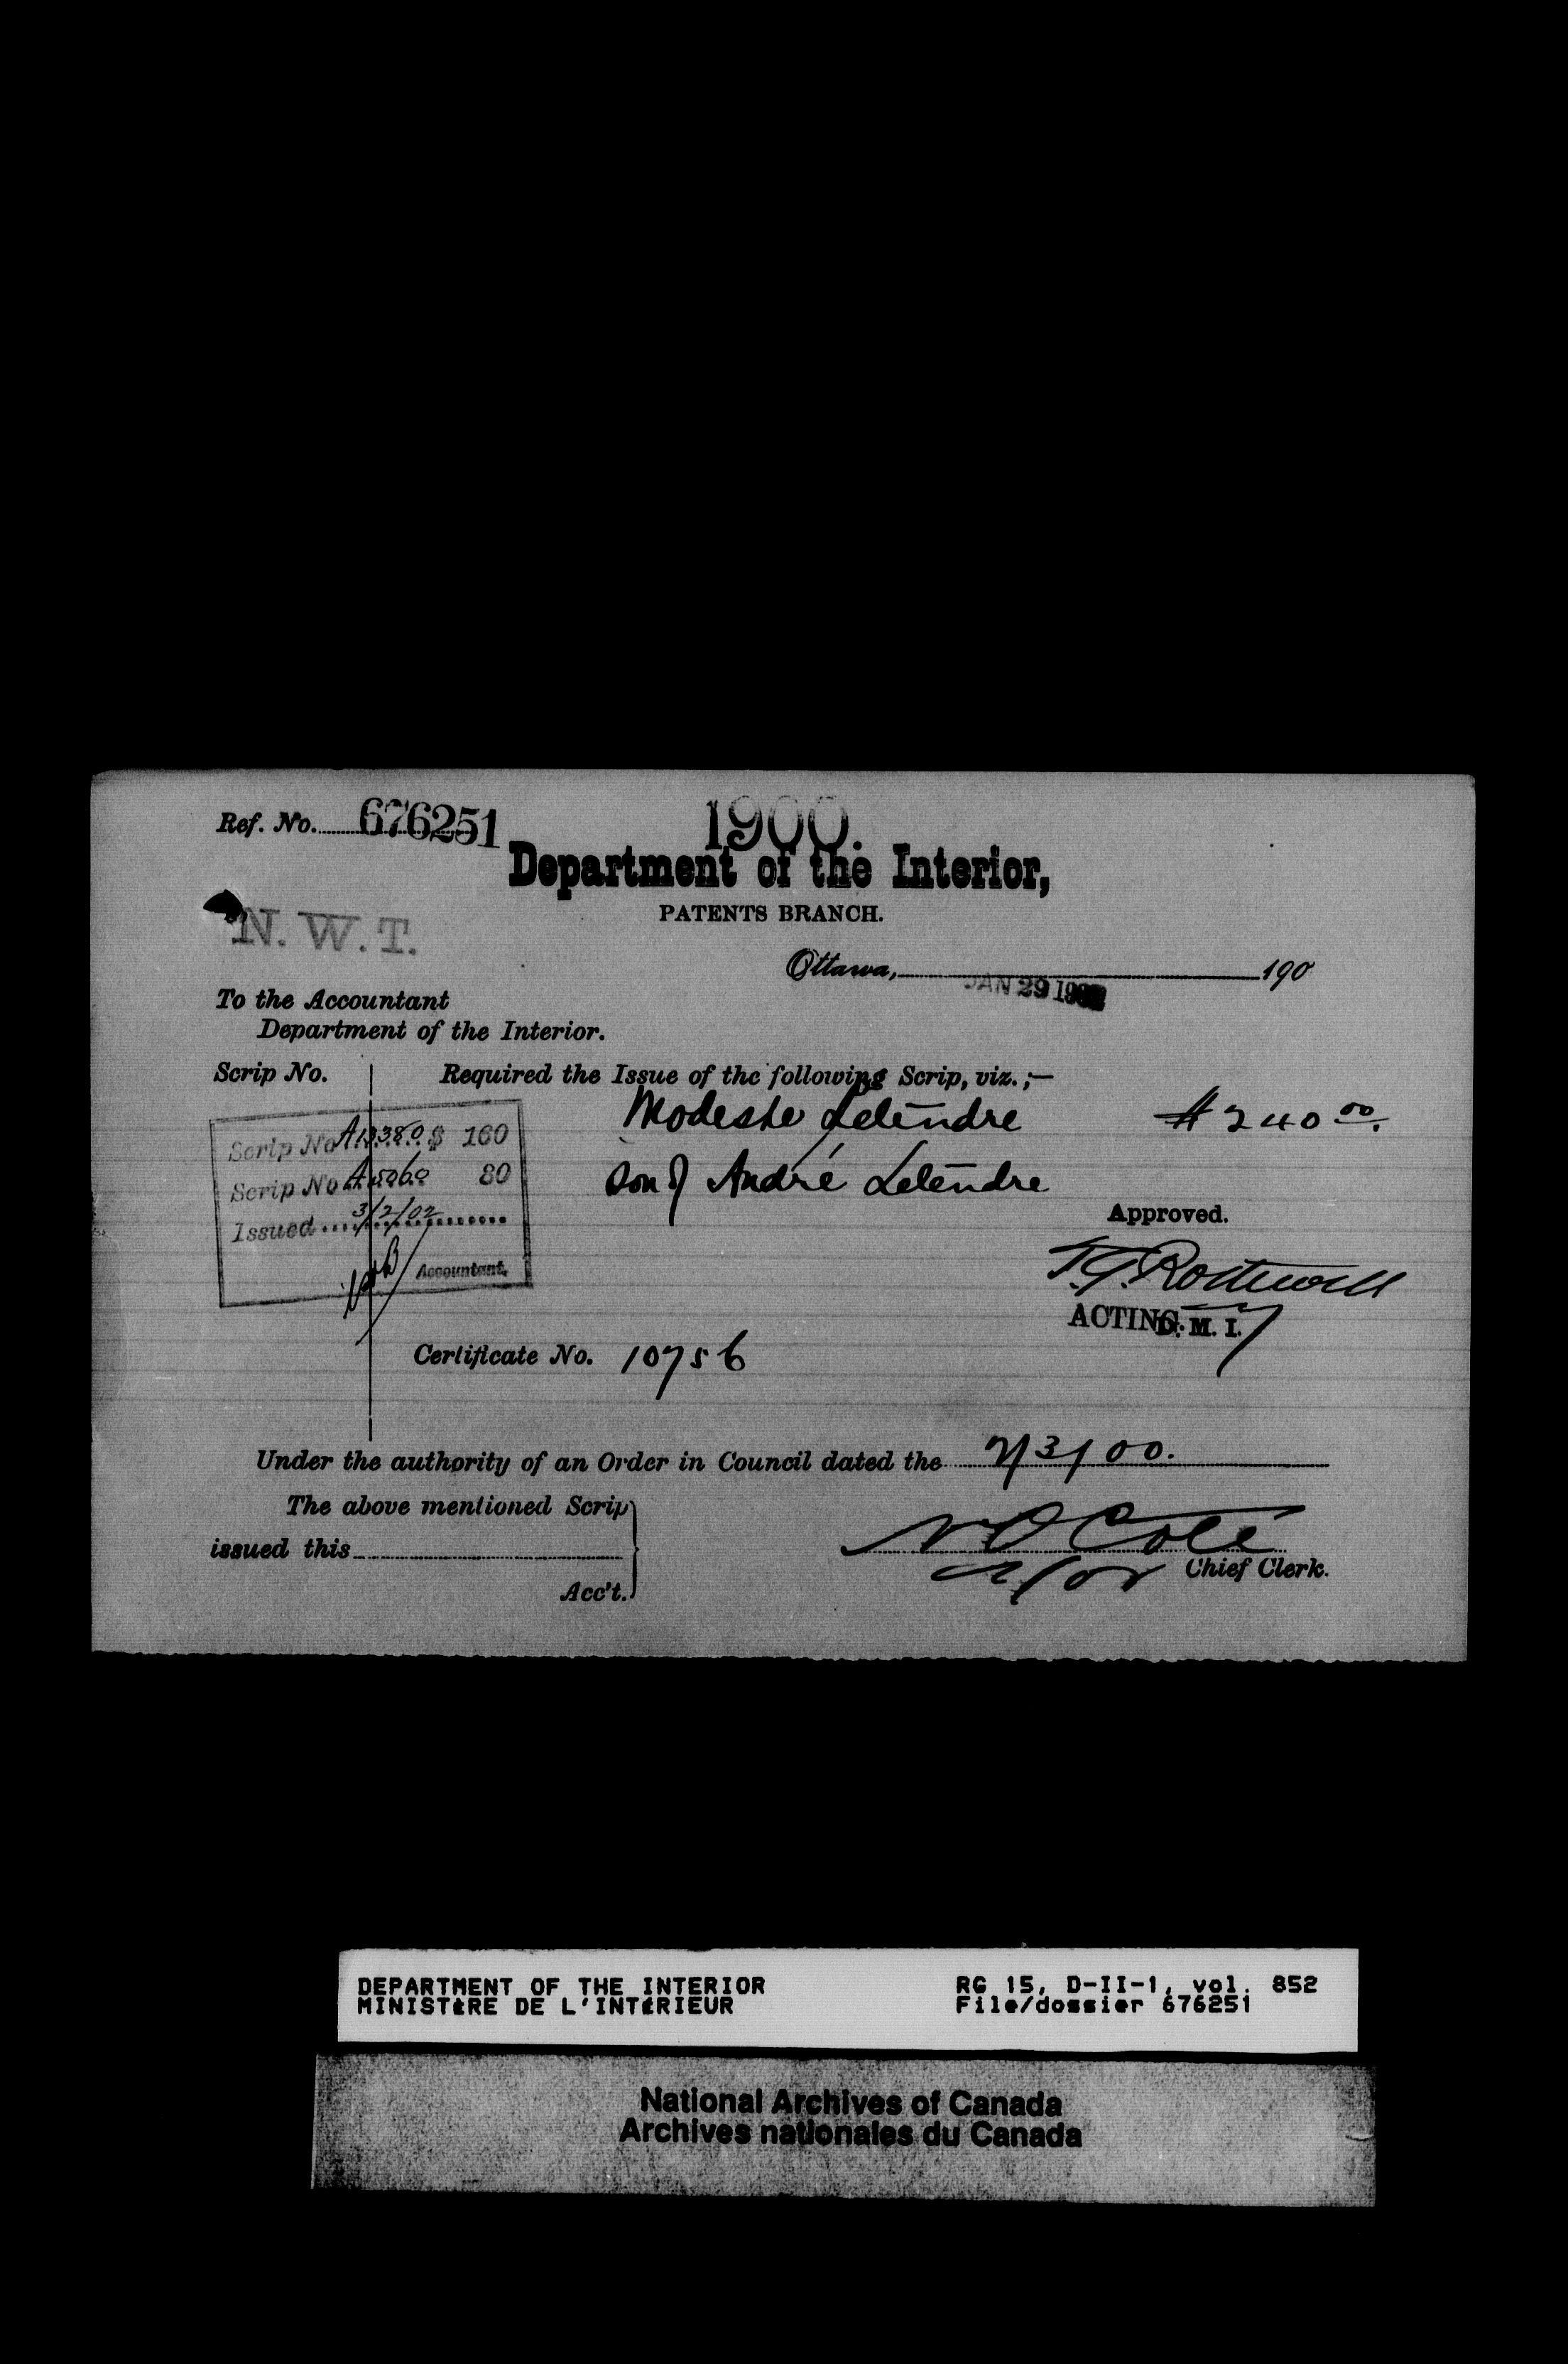 Ref. No. 676251
1900.
Department of the Interior,
PATENTS BRANCH.
N. W. T.
Ottawa, 190
JAN 29 190
To the Accountant
Department of the Interior.
Scrip No. Required the Issue of the following Scrip, viz.;—
Modeste Letendre $240 00.
son of André Letendre
Scrip No A13380 $ 160
Scrip No A5060 80
Issued 3/2/02
Accountant.
Approved.
T.G. Rothwell
ACTING D. M. I.
Certificate No. 10756
Under the authority of an Order in Council dated the 2/3/00.
The above mentioned Scrip
issued this
Acc't.
N O Coté
Chief Clerk.
DEPARTMENT OF THE INTERIOR RG 15, D-II-1, vol. 852
MINISTÈRE DE L'INTÉRIEUR File/dossier 676251
National Archives of Canada
Archives nationales du Canada